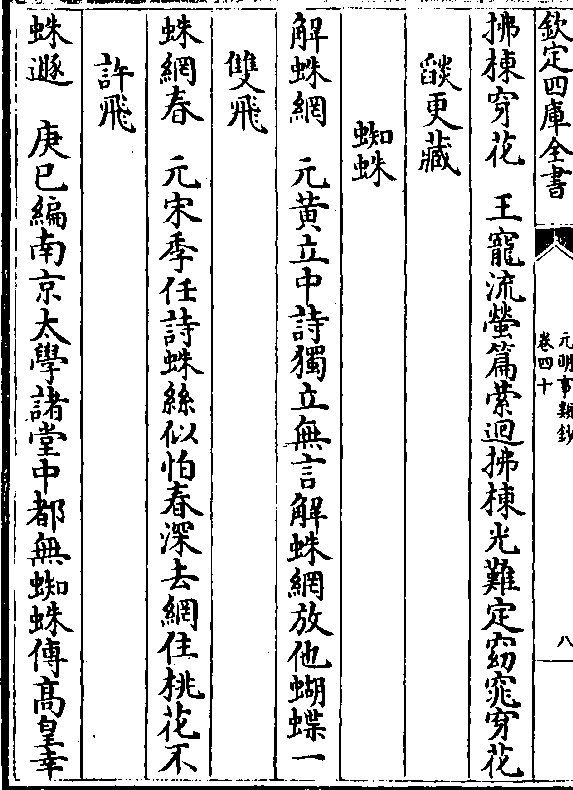 欽定四庫全書
元明事類鈔
卷四十
八
拂棟穿花　王寵流螢篇縈迴拂棟光難定窈窕穿花
燄更藏
蜘蛛
解蛛網　元黃立中詩獨立無言解蛛網放他蝴蝶一
雙飛
蛛網春　元宋季任詩蛛絲似怕春深去網住桃花不
許飛
蛛遯　庚巳編南京太學諸堂中都無蜘蛛傳高皇幸